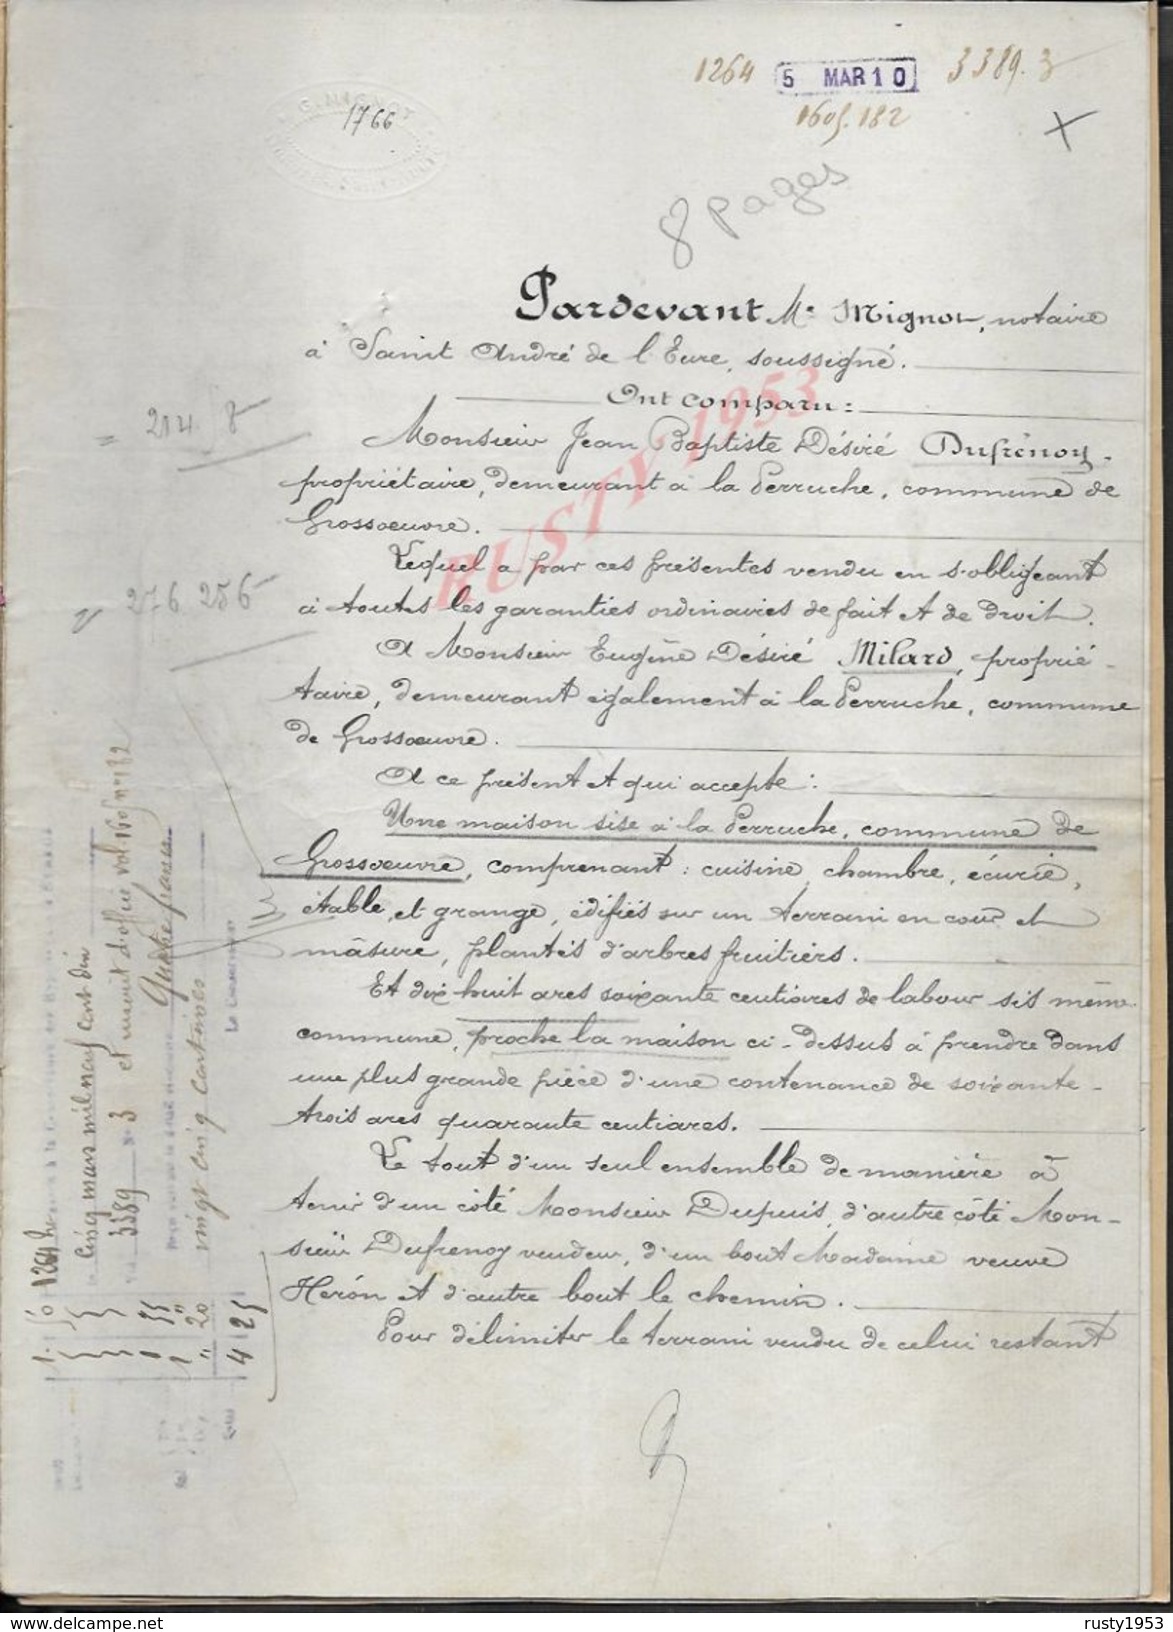 1264 5 MAR 10 3389. 3
160f. 182
G. MIGNOT
1766
8 pages
Pardevant Me Mignot, notaire
à Saint André de l'Eure, soussigné.
Ont comparu:
Monsieur Jean Baptiste Désiré Dufrénoy.
propriétaire, demeurant à la Perruche, commune de
Grossoeuvre.
Lequel a par ces présentes vendu en s'obligeant
à toutes les garanties ordinaires de fait et de droit.
A Monsieur Eugène Désiré Milard, proprié-
taire, demeurant également à la Perruche, commune
de Grossoeuvre.
A ce présent et qui accepte:
Une maison sise à la Perruche, commune de
Grossoeuvre, comprenant: cuisine, chambre, écurie,
étable, et grange, édifiés sur un terrain en cour et
mâsure, plantés d'arbres fruitiers.
Et dix huit ares soixante centiares de labour sis même
commune, proche la maison ci-dessus à prendre dans
une plus grande pièce d'une contenance de soixante-
trois ares quarante centiares.
Le tout d'un seul ensemble de manière à
tenir d'un côté Monsieur Dupuis, d'autre côté Mon-
sieur Dufrenoy vendeur, d'un bout Madame veuve
Héron et d'autre bout le chemin.
Pour délimiter le terrain vendu de celui restant
= 214 / 8
276 256
1264
cinq mars mil neuf cent dix
3389 No 3 et inscrit d'office vol 160f no 182
Quatre francs
vingt cinq centimes
Le Conservateur
4 25
RUSTY 1953
www.delcampe.net
rusty1953